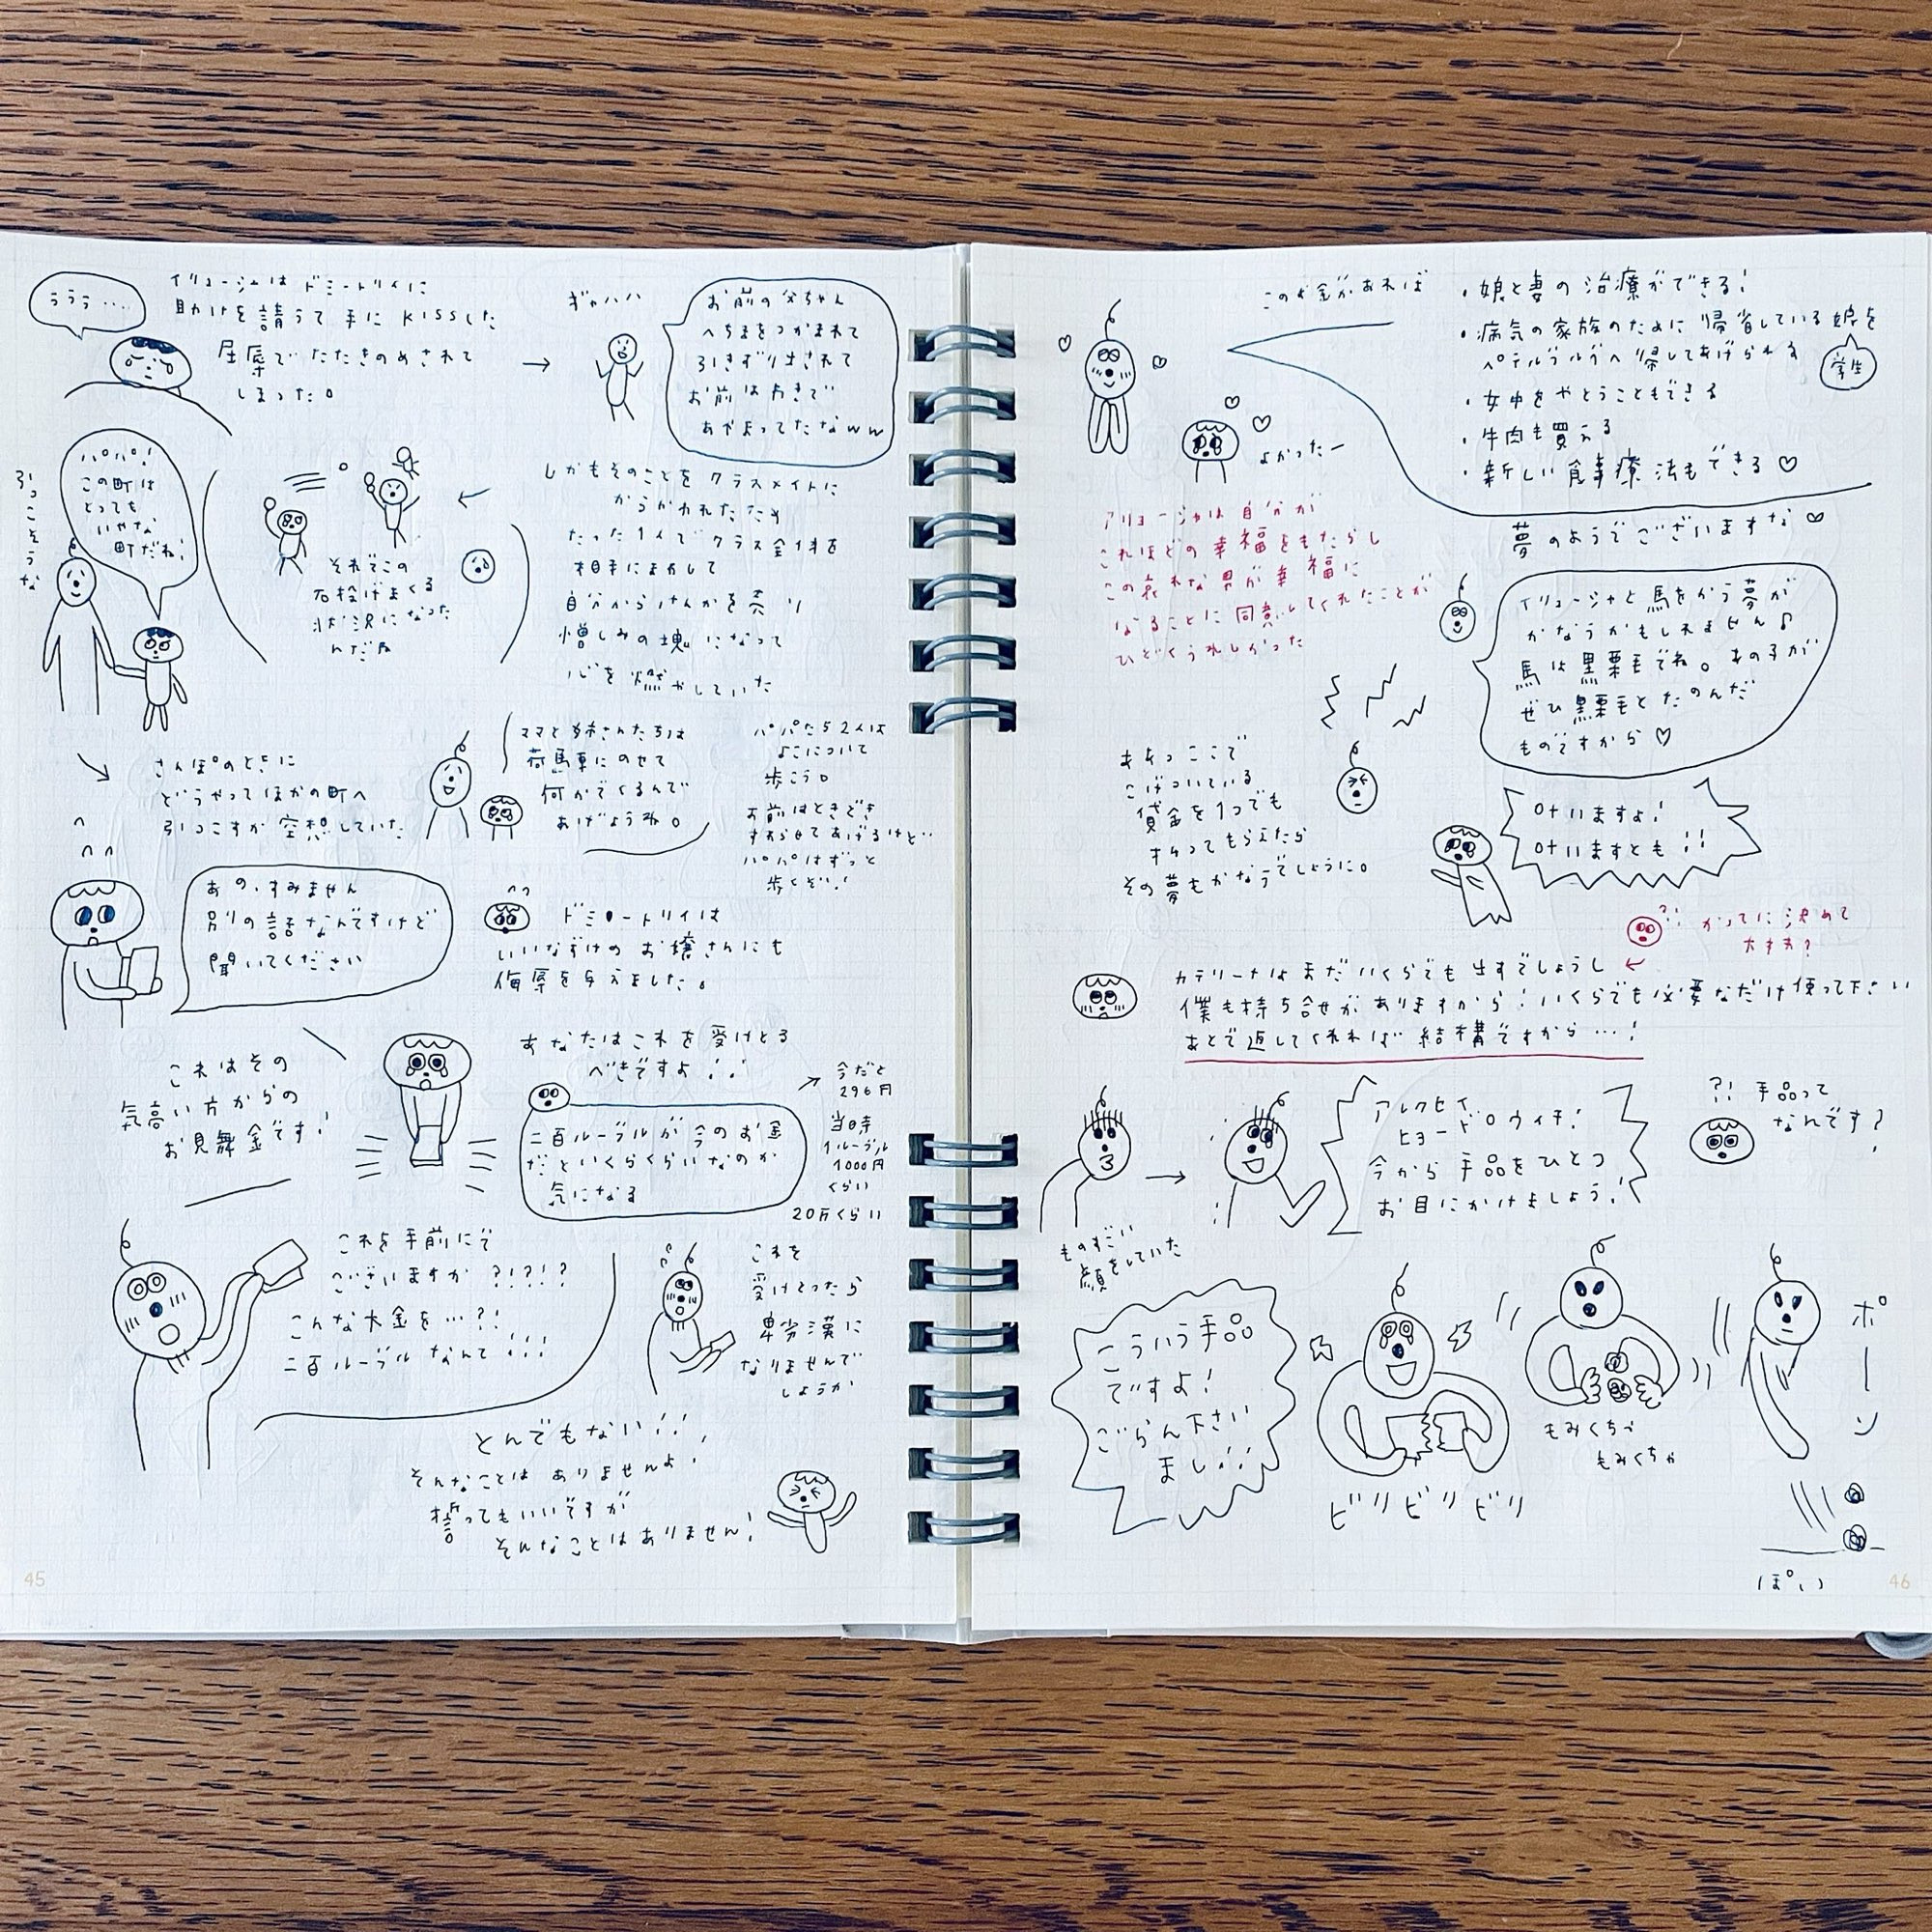 ううう‥‥
イリューシャはドミートリイに
助けを請うて手にKISSした
屈辱でたたきのめされて
しまった。
→
ギャハハ
お前の父ちゃん
へちまをつかまれて
引きずり出されて
お前は力きで
あやまってたなww
しかもそのことをクラスメイトに
からかわれたため
たった1人でクラス全体を
相手にまわして
自分からけんかを売り
憎しみの塊になって
心を燃やしていた
それでこの
石投げまくる
状況になった
んだね
引っこそうな
パパ!
この町は
とっても
いやな
町だね!
さんぽのときに
どうやってほかの町へ
引っこすか空想していた
ママと姉さんたちは
荷馬車にのせて
何かでくるんで
あげようね。
パパたち2人は
よこについて
歩こう。
お前はときどき
すわらせてあげるけど‥
パパはずっと
歩くぞ!
あの、すみません
別の話なんですけど
聞いてください
ドミートリイは
いいなずけのお嬢さんにも
侮辱を与えました。
これはその
気高い方からの
お見舞金です!
あなたはこれを受けとる
べきですよ!!
二百ルーブルが今のお金
だといくらくらいなのか
気になる
今だと
296円
当時
1ルーブル
1000円
くらい
20万くらい
これを手前にで
ございますか?!?!?
こんな大金を…?!
二百ルーブルなんて!!!
これを
受けとったら
卑劣漢に
なりませんで
しょうか
とんでもない!!
そんなことはありませんよ!
誓ってもいいですが
そんなことはありません!
45
このお金があれば
・娘と妻の治療ができる!
・病気の家族のために帰省している娘を
ペテルブルグへ帰してあげられる
学生
・女中をやとうこともできる
・牛肉も買える
・新しい食事療法もできる♡
よかったー
夢のようでございますな♡
アリューシャは自分が
これほどの幸福をもたらし
この哀れな男が幸福に
なることに同意してくれたことが
ひどくうれしかった
イリューシャと馬をかう夢が
かなうかもしれません♪
馬は黒栗毛でね。あの子が
ぜひ黒栗毛とたのんだ
ものですから♡
ああっここで
こげついている
貸金を1つでも
払ってもらえたら
その夢もかなうでしょうに。
叶いますよ!
叶いますとも!!
?!かってに決めて
大丈夫?
カテリーナはまだいくらでも出すでしょうし ←
僕も持ち合せがありますから!いくらでも必要なだけ使って下さい
あとで返してくれれば結構ですから…!
ものすごい
顔をしていた
→
アレクセイ
ヒョードロウィチ!
今から手品をひとつ
お目にかけましょう!
?!手品って
なんです?
こういう手品
ですよ!
ごらん下さい
まし!!
ビリビリビリ
もみくちゃ
もみくちゃ
ポーン
ぽい
46